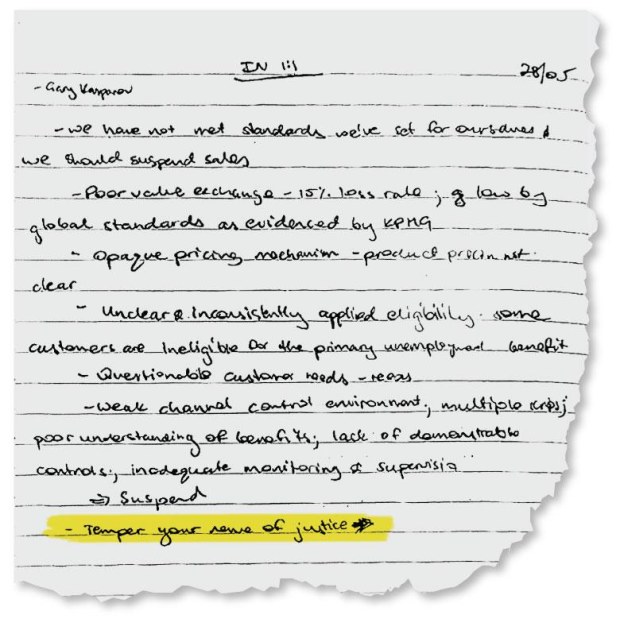 IN 1:1
28/05
- Gary Kasparov
- we have not met standards we've set for ourselves &
we should suspend sales
- Poor value exchange - 15% loss rate ; low by
global standards as evidenced by KPMG
- opaque pricing mechanism - product not
clear
- Unclear & inconsistently applied eligibility. some
customers are ineligible for the primary unemployment benefit
- Questionable customer needs -
- weak channel control environment, multiple
poor understanding of benefits; lack of demonstrable
controls; inadequate monitoring &
=> Suspend
- Temper your sense of justice